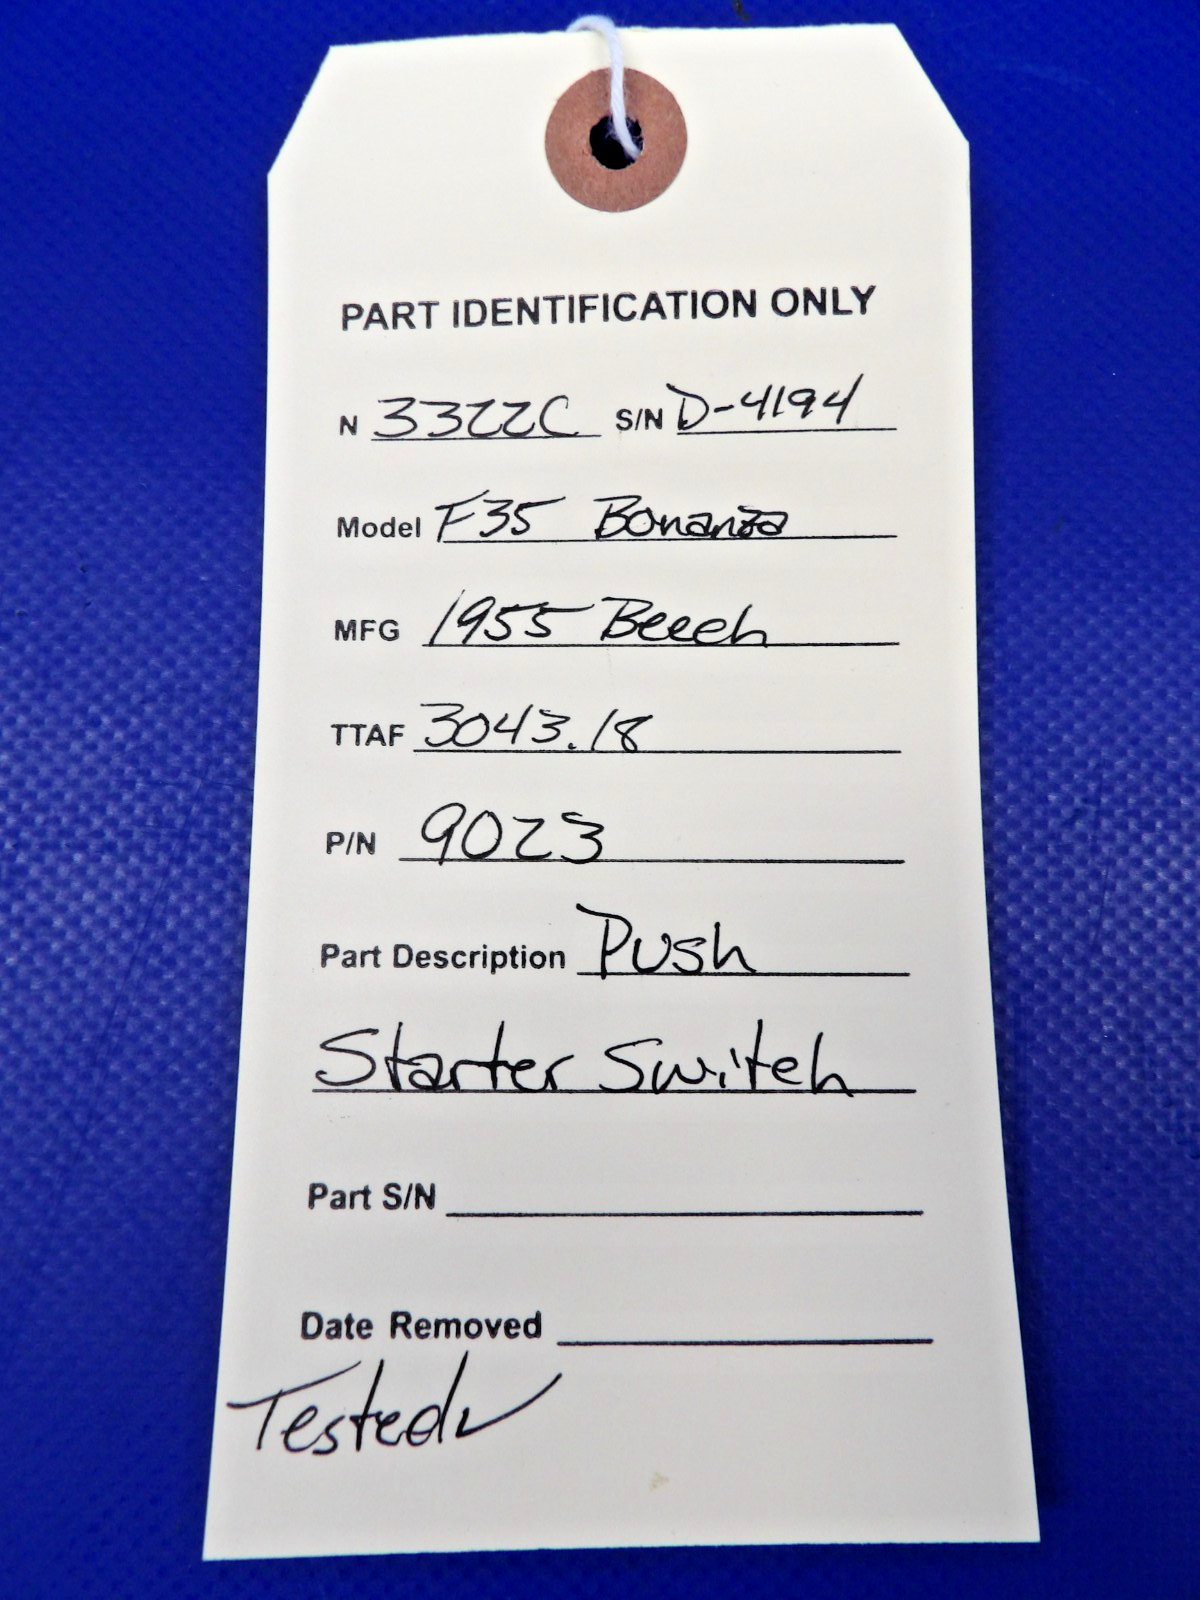 PART IDENTIFICATION ONLY
N 3322C S/N D-4194
Model F35 Bonanza
MFG 1955 Beech
TTAF 3043.18
P/N 9023
Part Description Push
Starter Switch
Part S/N
Date Removed
Tested ✓